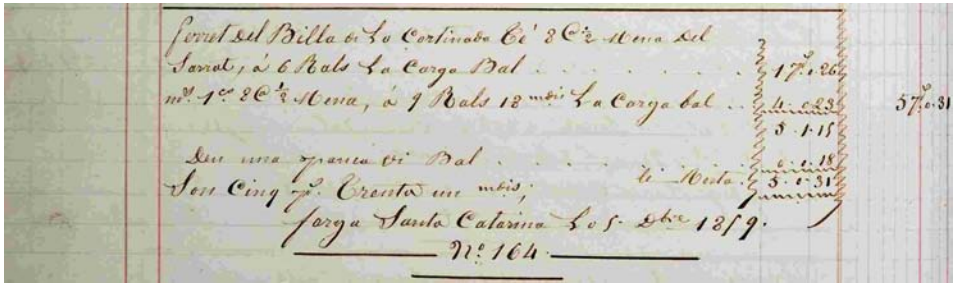 ferret del Billa di La Cortinada Té 8 C. ½ Mena del
Sarrat, á 6 Rals La Carga Bal . . . . . 1 p. 1. 26
mº. 1ª 8 C ½ Mena, á 9 Rals 18 mdis La Carga bal . . 4. 0. 23 5 p. 0. 31
5. 1. 15
Deu una di Bal . . . . . . 0. 1. 18
li Resta. 5. 0. 31
Son Cinq p. Trenta un mdis;
farga Santa Catarina Lo 5 Dbre 1859.
Nº. 164.